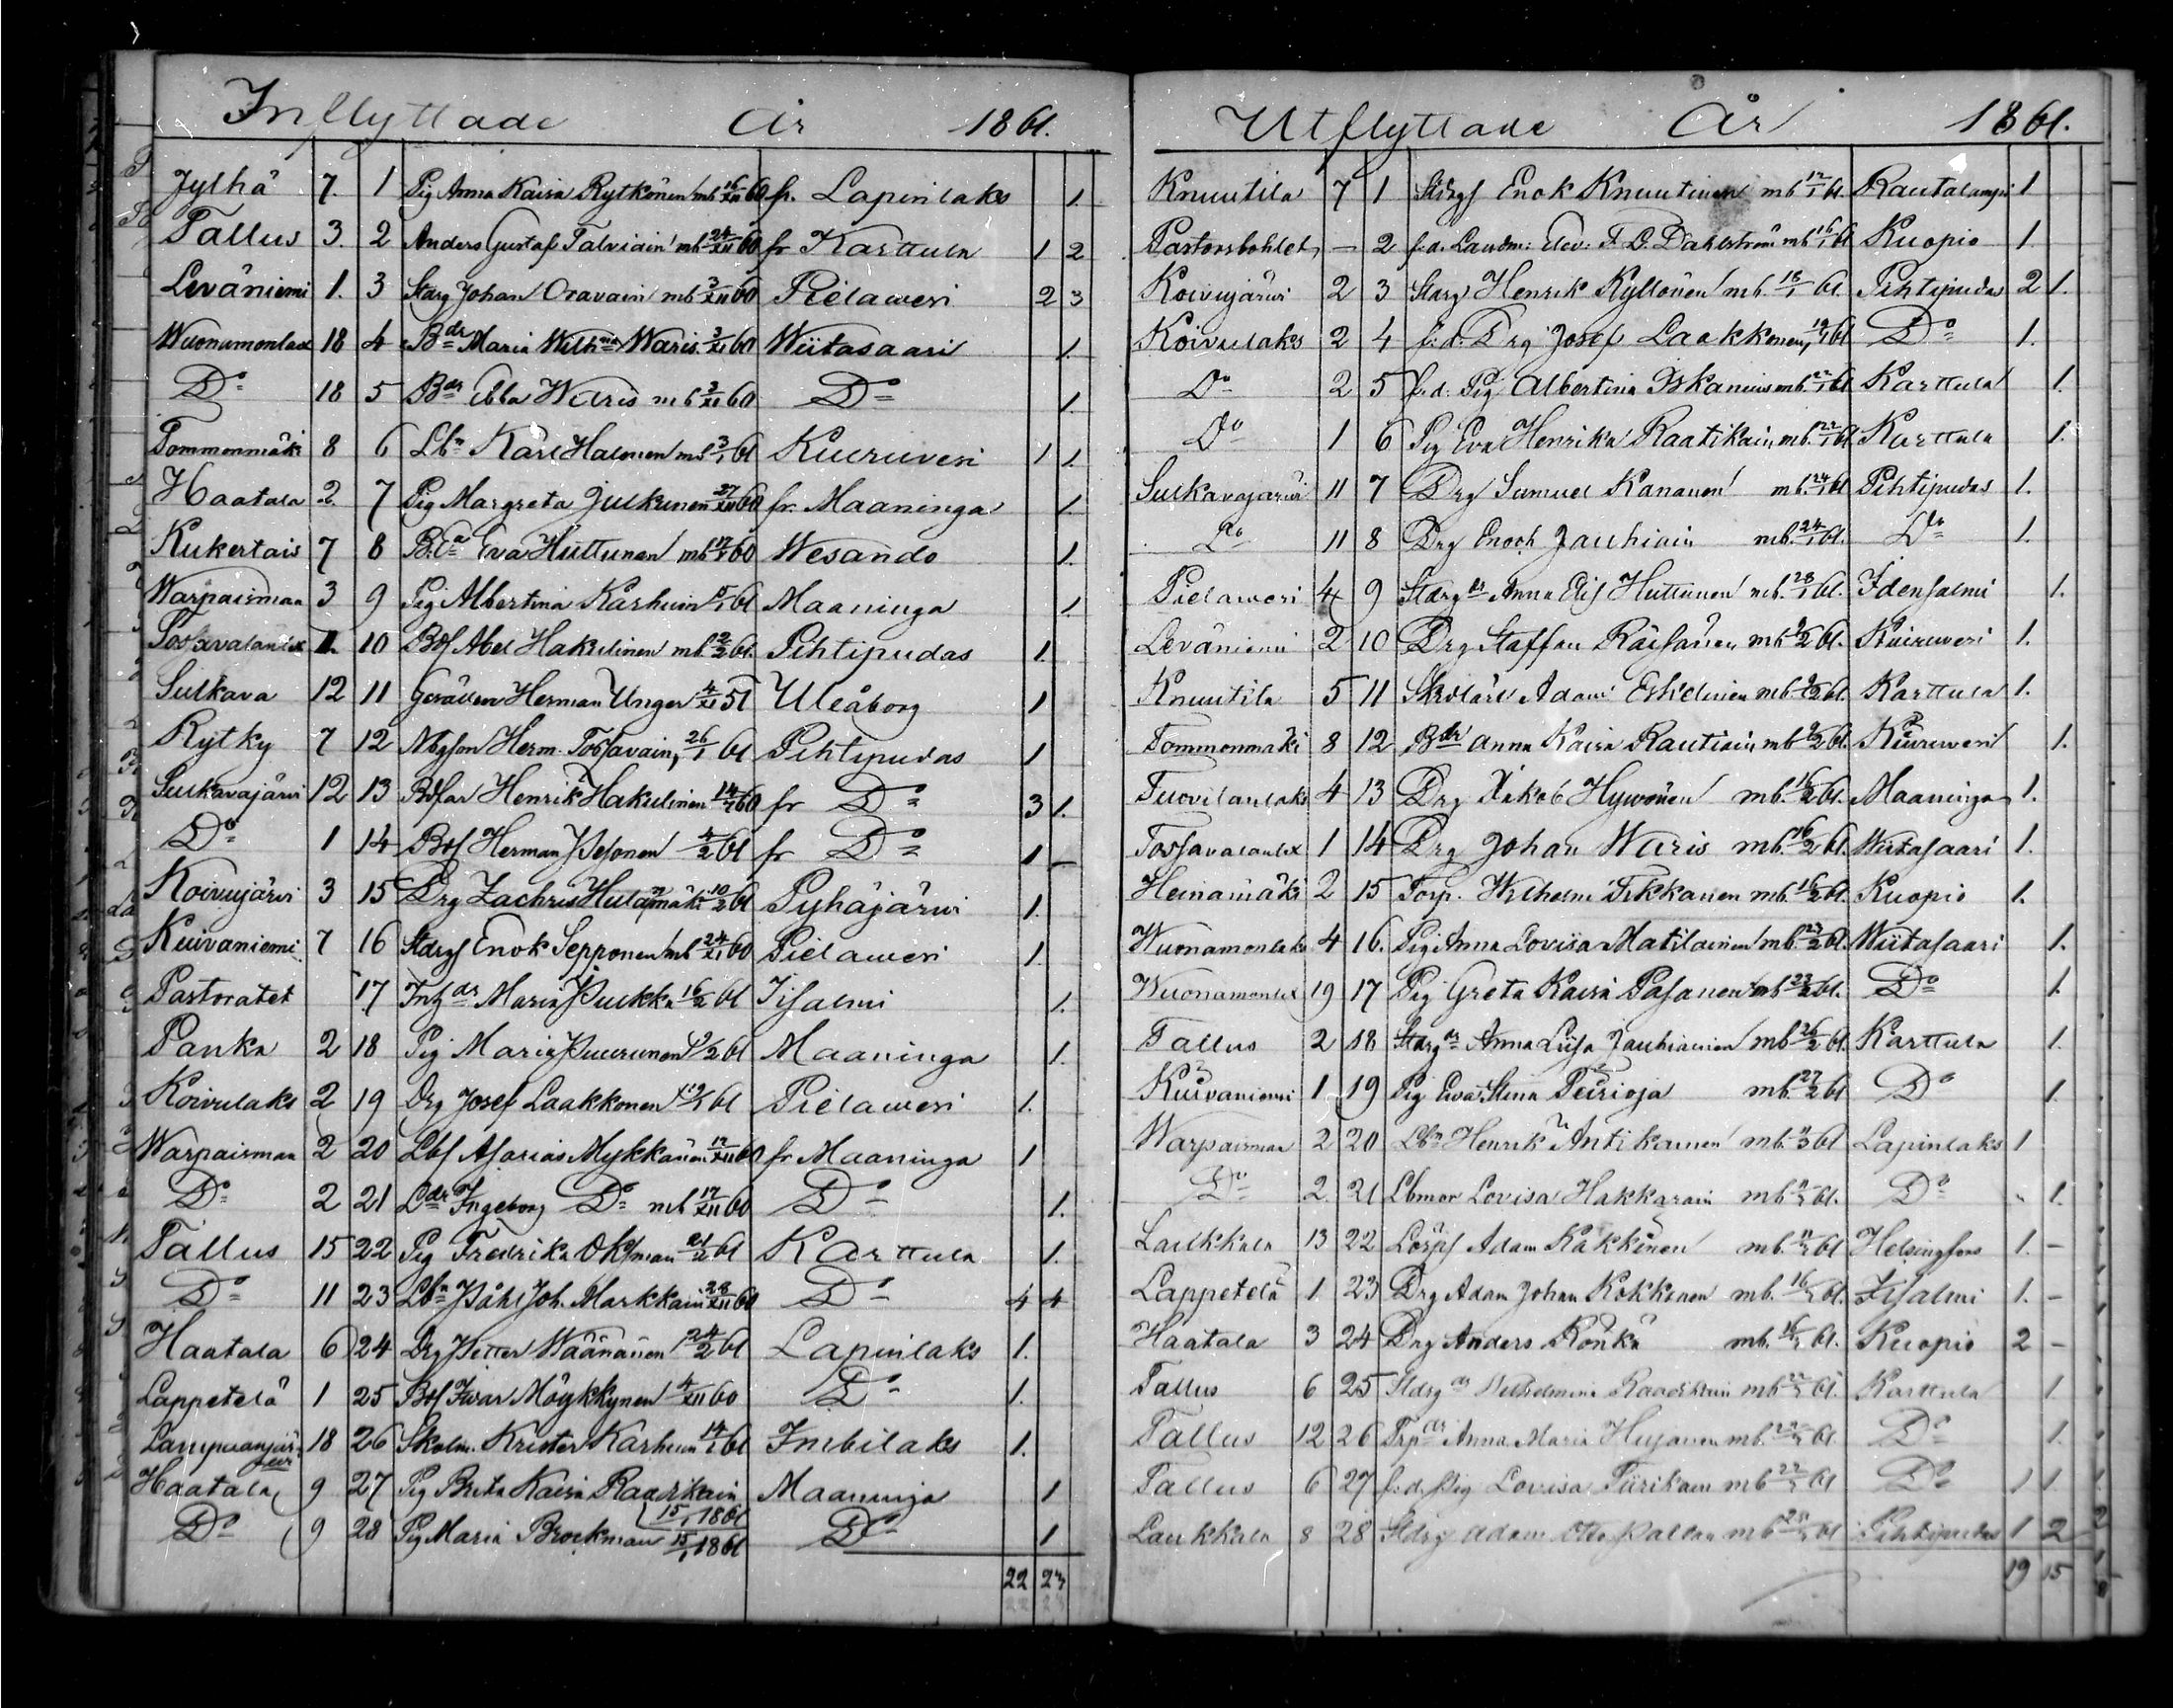 Inflyttade År 1861.
Jylhä 7. 1 Pig Anna Kaisa Rytkönen mb 16/XII 60 fr. Lapinlaks 1.
Tallus 3. 2 Anders Gustaf Talviain mb 24/XII 60 fr Karttula 1 2
Leväniemi 1. 3 Starg Johan Oravain mb 3/XII 60 Pielawesi 2 3
Wuonamonlax 18 4 Bdr Maria Wilhna Waris 3/XI 60 Wiitasaari 1.
Do 18 5 Bdr Ebba Waris mb 3/XI 60 Do 1.
Tommonmäki 8 6 Lbn Karl Halonen mb 3/1 61 Kiuruvesi 1 1.
Haatala 2. 7 Pig Margreta Julkunen 27/XII 60 fr. Maaninga 1.
Kukertais 7 8 Eva Huttunen mb 60 Wesando 1.
Warpaisman 3 9 Pig Albertina Karhuin 61 Maaninga 1.
Tossavalanlax 10 Bds Abel Hakulinen mb 2/2 61. Pihtipudas 1.
Sulkava 12 11 Gesällen Herman Unger 4/XI 57 Uleåborg 1
Rytky 7 12 Herm. Tossavain, 26/1 61 Pihtipudas 1
Sulkavajärvi 12 13 Henrik Hakulinen 60 fr Do 3 1.
Do 1 14 Herman Pesonen 4/2 61 fr Do 1
Koivujärvi 3 15 Drg Zachris 10/2 61 Pyhäjärvi 1.
Kuivaniemi 7 16 Stdrgs Enok Sepponen mb 24/XI 60 Pielawesi 1.
Pastoratet 17 Maria Pulkka 16/2 61 Iisalmi 1.
Panka 2 18 Pig Maria Puurunen 61 Maaninga 1.
Koivulaks 2 19 Drg Josef Laakkonen 61 Pielawesi 1.
Warpaisman 2 20 Lbs Asarias Mykkänen 17/XII 60 fr Maaninga 1
Do 2 21 Ldr Ingeborg Do mb 17/XII 60 Do 1.
Tallus 15 22 Pig Fredrika Oksman 21/2 61 Karttula 1.
Do 11 23 Lbn Påhl Joh. Markkain 28/XII 60 Do 4 4
Haatala 6 24 Drg Petter Wäänänen 24/2 61 Lapinlaks 1.
Lappetelä 1 25 Bds Iwar Möykkynen 4/XII 60 Do 1.
18 26 Skolm. Krister Karhun 14/1 61 Imbilaks 1.
Haatala 9 27 Pig Brita Kaisa Raatikain 15/1 1861 Maaninga 1
Do 9 28 Pig Maria Brockman 15/1 1861 Do 1
22 23
Utflyttade År 1861.
Knuutila 7 1 Stdrgs Enok Knuutinen mb 12/1 61. Rautalampi 1
Pastorsbohlet, – 2 f.d. Landm: Elev: F. L. Dahlström mb 16/1 61 Kuopio 1.
Koivujärvi 2 3 Starg Henrik Kyllönen mb. 18/1 61. Pihtipudas 2 1.
Koivulaks 2 4 f.d. Drg Josef Laakkonen, 19/1 61 Do 1.
Do 2 5 f.d. Pig Albertina Iskanius mb. 22/1 61 Karttula 1.
Do 1 6 Pig Eva Henrika Raatikain, mb. 22/1 61 Karttula 1.
Sulkavajärvi 11 7 Drg Samuel Kananen mb. 24/1 61 Pihtipudas 1.
Do 11 8 Drg Enoch Jauhiain mb. 24/1 61. Do 1.
Pielawesi 4 9 Stdrg Anna Elis Huttunen mb. 28/1 61. Idensalmi 1.
Leväniemi 2 10 Drg Staffan Räisänen mb 61. Kiuruvesi 1.
Knuutila 5 11 Adam Eskelinen mb 61. Karttula 1.
Tommonmäki 8 12 Bdr Anna Kaisa Rautiain mb 61. Kiuruvesi 1.
Tuovilanlaks 4 13 Drg Jakob Hyvönen mb. 16/2 61. Maaninga 1.
Tossavalanlax 1 14 Drg Johan Waris mb. 16/2 61. Wiitasaari 1.
Heinamäki 2 15 Torp. Wilhelm Tikkanen mb. 16/2 61. Kuopio 1.
Wuonamonlaks 4 16. Pig Anna Lovisa Matilainen mb. 23/2 61. Wiitasaari 1.
Wuonamonlax 19 17 Pig Greta Kaisa Pasanen mb 23/2 61. Do 1.
Tallus 2 18 Stdrg Anna Liisa Jauhiainen mb 26/2 61. Karttula 1.
Kuivaniemi 1 19 Pig Eva Stina mb. 27/2 61 Do 1.
Warpaisman 2 20 Lbn Henrik Antikainen mb. 61 Lapinlaks 1
Do 2 21 Lovisa Hakkarain mb 61. Do 1.
Laukkala 13 22 Adam Kakkinen mb. 61 Helsingfors 1. –
Lappetelä 1. 23 Drg Adam Johan Kokkonen mb. 16 61. Iisalmi 1. –
Haatala 3 24 Drg Anders Rönkä mb. 16 61. Kuopio 2 –
Tallus 6 25 Stdrg Wilhelmina Raatikain mb 22 61. Karttula 1.
Tallus 12 26 Anna Maria mb. 22 61. Do 1.
Tallus 6 27 f.d. pig Lovisa mb 22 61 Do 1.
Laukkala 8 28 Stdrg Adam Otto mb 61 Pihtipudas 1 2
19 15